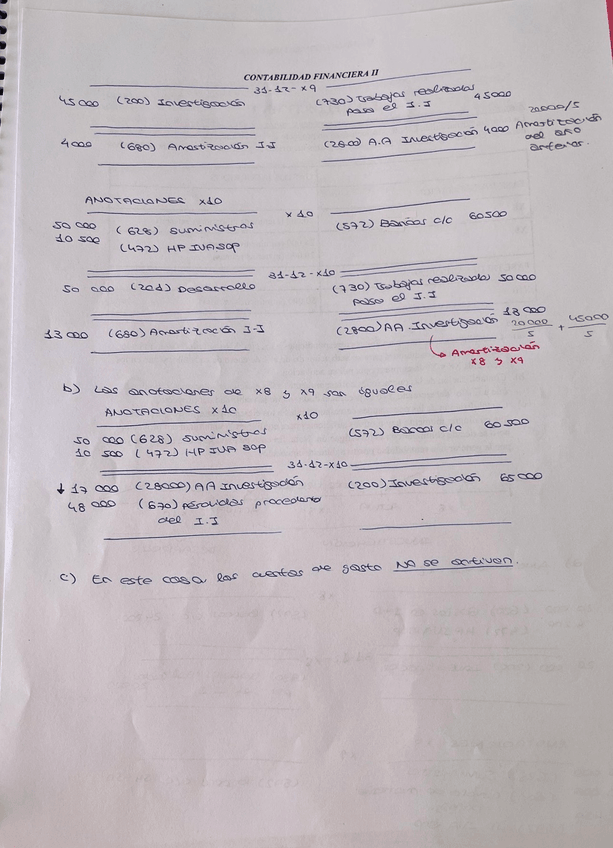 CONTABILIDAD FINANCIERA II
31-12-x9
45 000 (200) Investigación (730) Trabajos realizados para el I.I 45000
4000 (680) Amortización I.I (2800) A.A Investigación 4000 20000/5 Amortización del año anterior.
ANOTACIONES x10
x10
50 000 (628) Suministros (572) Bancos c/c 60500
10 500 (472) HP IVA SOP
31-12-x10
50 000 (201) Desarrollo (730) Trabajos realizados para el I.I 50 000
13 000 (680) Amortización I.I (2800) AA. Investigación 13 000 20000/5 + 45000/5
↳ Amortización x8 y x9
b) Las anotaciones de x8 y x9 son iguales
ANOTACIONES x10
x10
50 000 (628) Suministros (572) Bancos c/c 60 500
10 500 (472) HP IVA SOP
31-12-x10
↓ 17 000 (28000) AA Investigación (200) Investigación 65000
48 000 (670) Pérdidas procedente del I.I
c) En este caso las cuentas de gasto NO se activan.